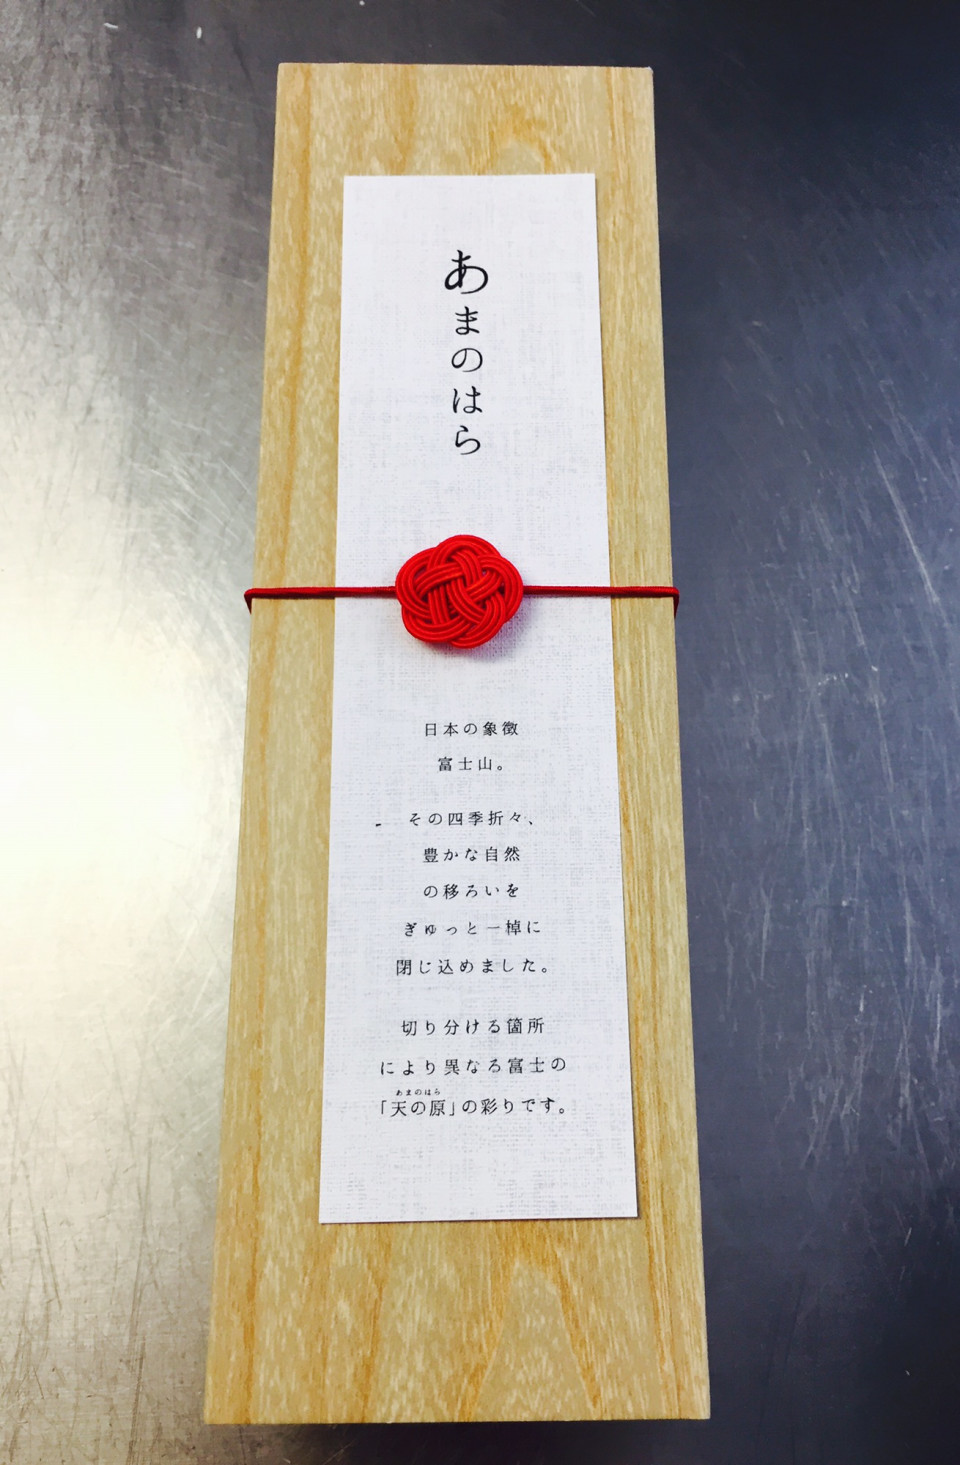 あまのはら
日本の象徴
富士山。
その四季折々、
豊かな自然
の移ろいを
ぎゅっと一棹に
閉じ込めました。
切り分ける箇所
により異なる富士の
あまのはら
「天の原」の彩りです。